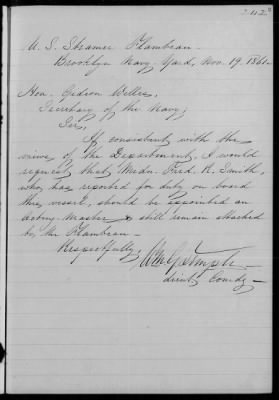 U. S. Steamer Flambeau
Brooklyn Navy Yard, Nov. 19. 1861
Hon. Gideon Welles,
Secretary of the Navy,
Sir,
If consistent with the
views of the Department, I would
request that, Midn. Fred. R. Smith,
who, has reported for duty on board
this vessel, should be appointed an
Acting Master & still remain attached
to, the Flambeau —
Respectfully,
Wm G. Temple
Lieut. Comdg —